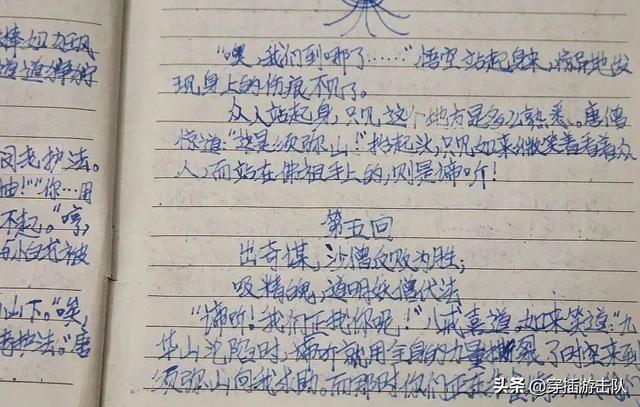 捧切
道道
司我护法。
油！”“你…用
不起。”“哼，
与小白龙被
山下。“唉，
护法。”唐
“噢，我们到哪了……”悟空站起身来，惊异地发
现身上的伤痕不见了。
众人站起身，只见这个地方是多么熟悉。唐僧
惊道：“这是须弥山！”抬起头，只见如来微笑着看着众
人，而站在佛祖手上的，则是谛听！
第五回
出奇谋，沙僧反败为胜；
吸精魄，道明妖僧伏法
“谛听！我们正找你呢！”八戒喜道。如来笑道：“九
华山沦陷时，谛听就用全身的力量撕裂了时空来到
须弥山向我求助。而那时你们正在
头条 @穿插游击队